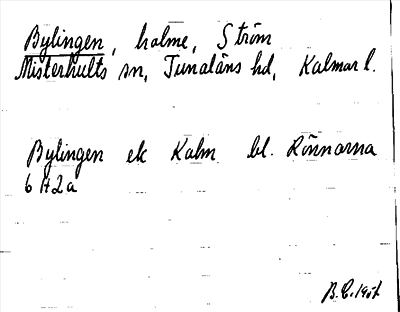 Bylingen, holme, Ström
Misterhults sn, Tunaläns hd, Kalmar l.
Bylingen ek Kalm bl. Rönnarna
6 H2a